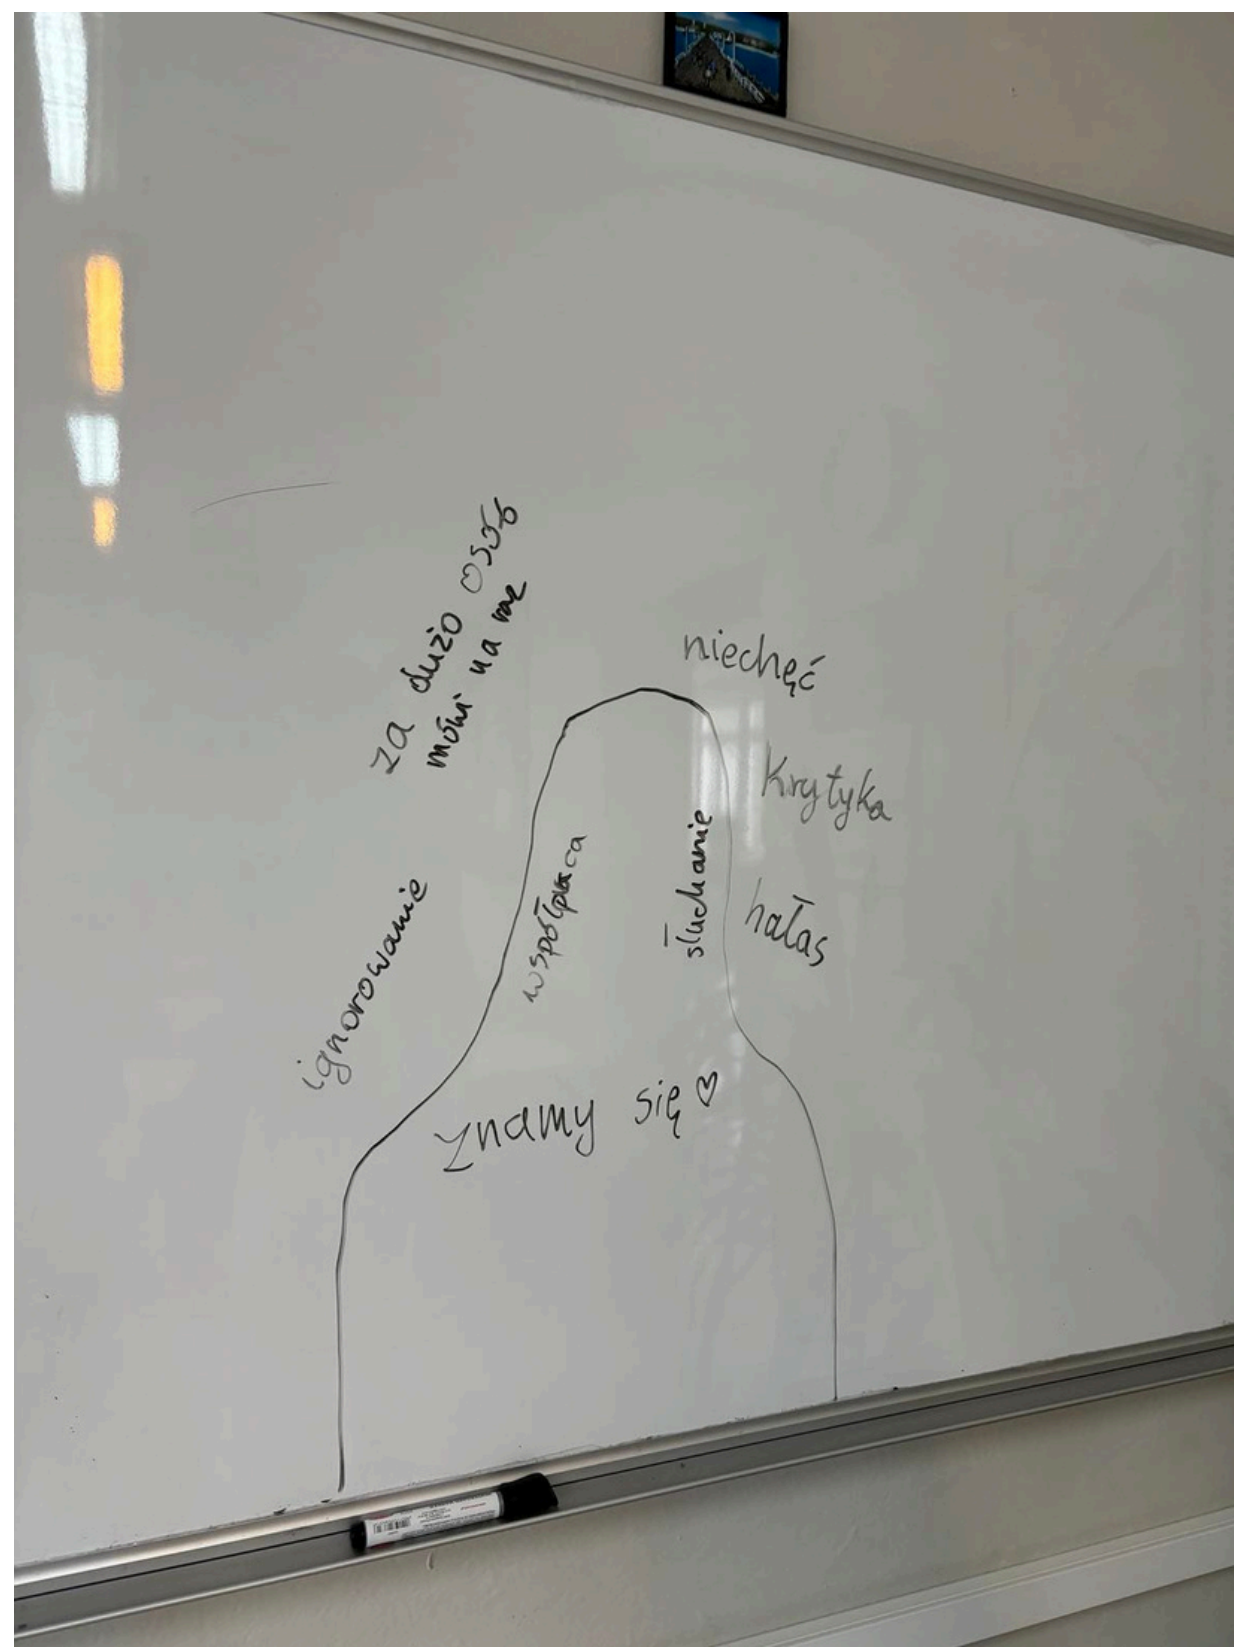 za dużo osób
mówi na raz
niechęć
Krytyka
hałas
słuchanie
współpraca
ignorowanie
znamy się ♡